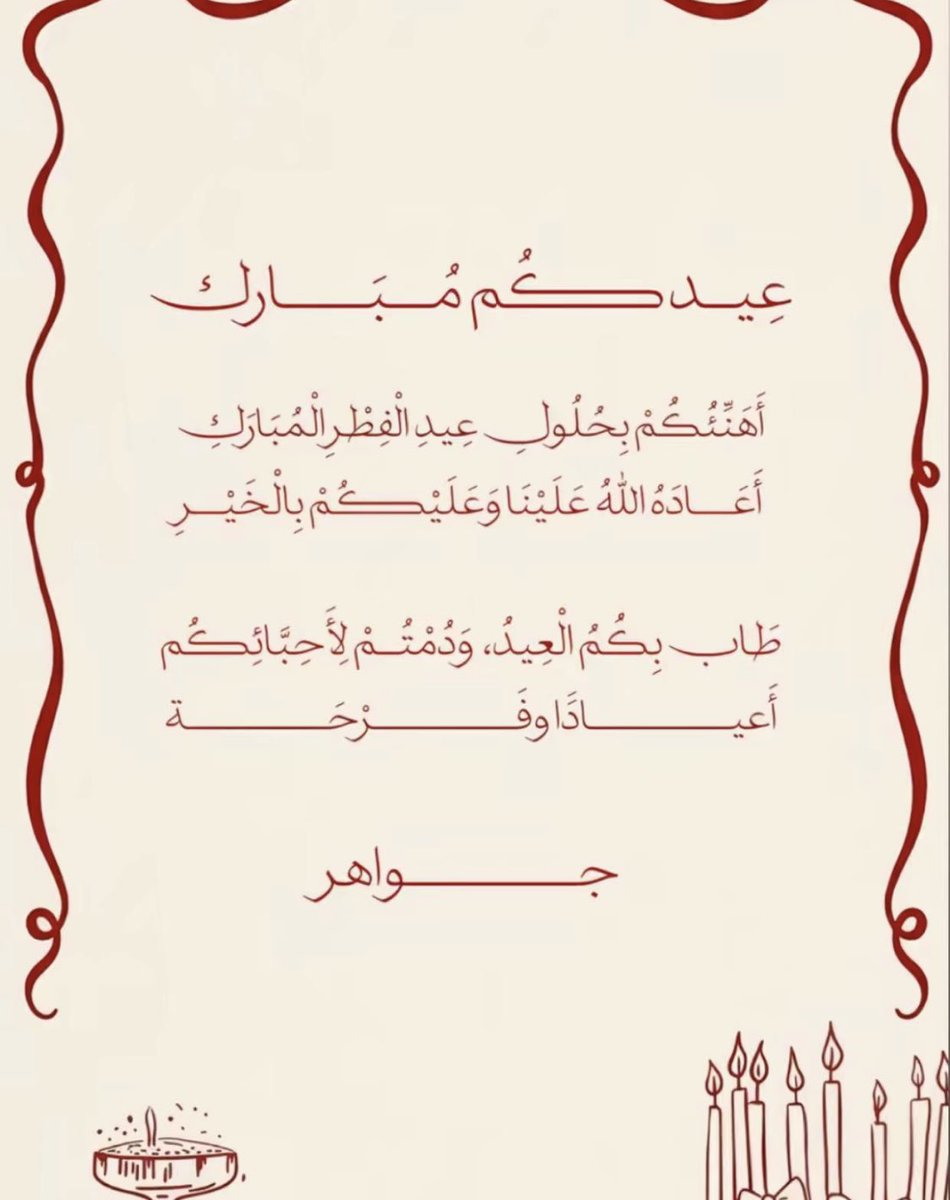 عِيدكُم مُبَارك
أَهَنِّئُكُمْ بِحُلُولِ عِيدِ الْفِطْرِ الْمُبَارَكِ
أَعَادَهُ اللهُ عَلَيْنَا وَعَلَيْكُمْ بِالْخَيْرِ
طَاب بِكُمُ الْعِيدُ، وَدُمْتُمْ لِأَحِبَّائِكُم
أَعيادًا وفَرْحَة
جواهر